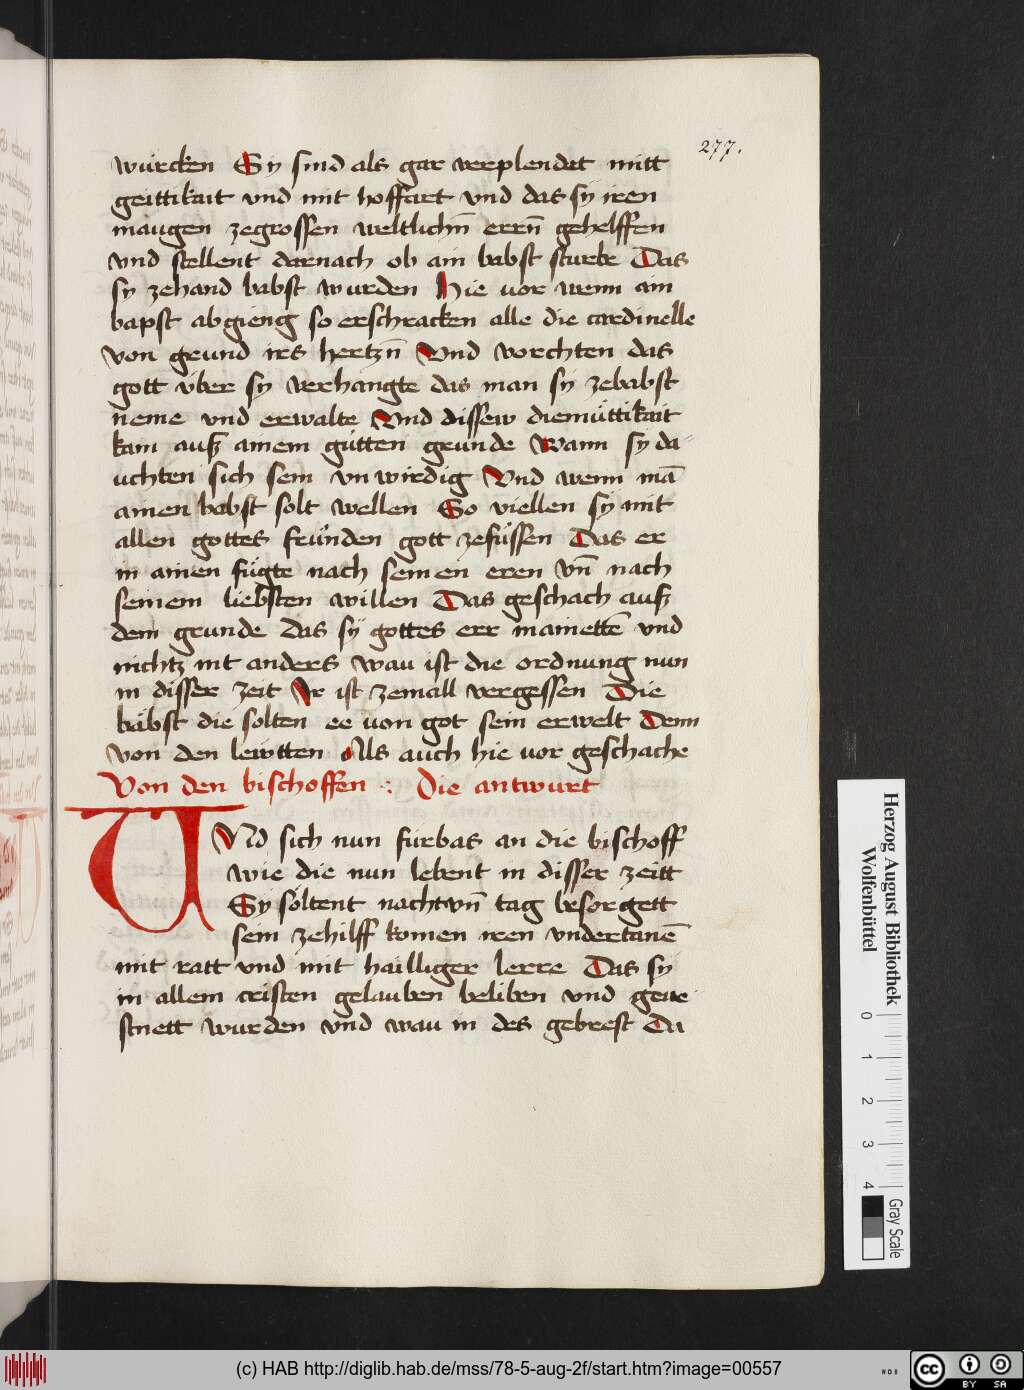 277.
wúrcken Sy sind als gar verplendet mitt
geittikait vnd mit hoffart vnd das sy iren
maúgen zegrossen weltlichn̄ errn̄ gehelffen
vnd stellent darnach ob ain babst sturbe Das
sy zehand babst wurden Hie vor wenn ain
bapst abgieng so erschracken alle die cardinelle
von grund irs hertzn̄ Vnd vorchten das
gott v̈ber sy verhangte das man sy zebabst
neme vnd erwalte Vnd dissew diemüttikait
kam ausz ainem gútten grunde Wann sy da
uchten sich sein vnwirdig Vnd wenn mā
ainen babst solt wellen So viellen sy mit
allen gottes freünden gott zefüssen Das er
in ainen fügte nach seinen eren vn̄ nach
seinem liebsten willen Das geschach ausz
dem grunde das sÿ gottes err mainettē vnd
nichtz nit anders wau ist die ordnung nun
in disser zeit Ir ist zemall vergessen Die
bäbst die solten ee von got sein erwelt Denn
von den lewtten Als auch hie vor geschache
Von den bischoffen :· Die antwurt
VNd sich nun fúrbas an die bischoff
wie die nun lebent in disser zeitt
Sy söltent nacht vn̄ tag besorgett
sein zehilff komen iren vndertanē
mit ratt vnd mit hailliger lerre Das sy
in allem cristen gelauben beliben vnd geue
stnett wurden vnd wau in des gebrest Da
Herzog August Bibliothek
Wolfenbüttel
0 1 2 3 4
Gray Scale
(c) HAB http://diglib.hab.de/mss/78-5-aug-2f/start.htm?image=00557
WDB
cc BY SA